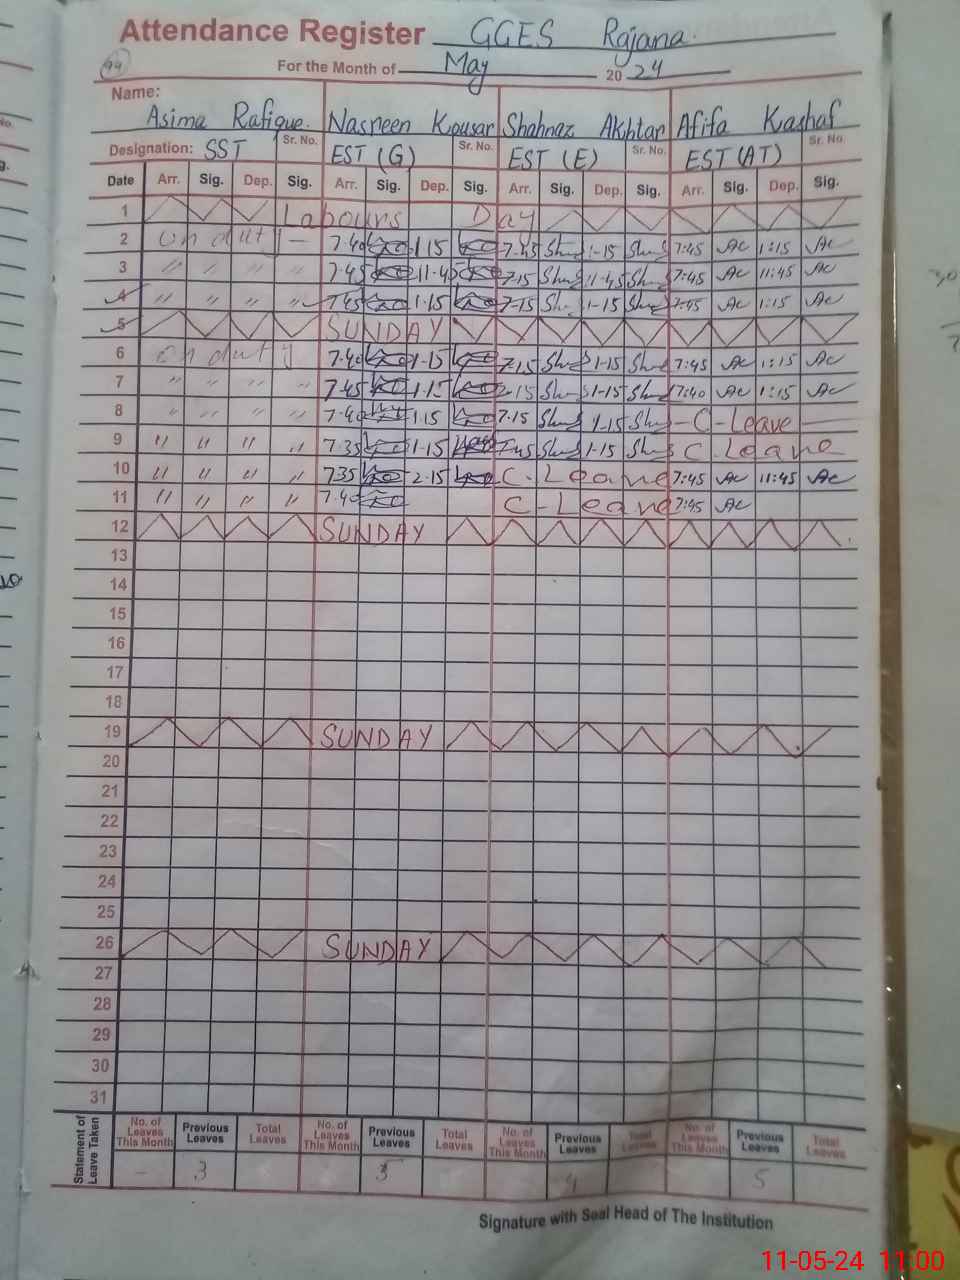 Attendance Register GGES Rajana.
94
For the Month of May 20 24
Name: Asima Rafique. Nasreen Kousar Shahnaz Akhtar Afifa Kashaf
Designation: SST Sr. No. EST (G) Sr. No. EST (E) Sr. No. EST (AT) Sr. No.
Date Arr. Sig. Dep. Sig. Arr. Sig. Dep. Sig. Arr. Sig. Dep. Sig. Arr. Sig. Dep. Sig.
1 Labours Day
2 on duty - 7.40 1.15 7.45 1-15 7:45 Ac 1:15 Ac
3 " " " " 7.45 11.45 7.15 11.45 7:45 Ac 11:45 Ac
4 " " " " 7.45 1.15 7-15 1-15 7:45 Ac 1:15 Ac
5 SUNDAY
6 on duty 7.40 1-15 7.15 1-15 7:45 Ac 1:15 Ac
7 " " " " 7.45 1.15 7.15 1-15 7:40 Ac 1:15 Ac
8 " " " " 7.40 1.15 7.15 1.15 - C - Leave
9 " " " " 7.35 1.15 7.45 1-15 C. Leave
10 " " " " 7.35 2.15 C. Leave 7:45 Ac 11:45 Ac
11 " " " " 7.40 C-Leave 7:45 Ac
12 SUNDAY
13
14
15
16
17
18
19 SUNDAY
20
21
22
23
24
25
26 SUNDAY
27
28
29
30
31
Statement of Leave Taken
No. of Leaves This Month Previous Leaves Total Leaves No. of Leaves This Month Previous Leaves Total Leaves No. of Leaves This Month Previous Leaves Total Leaves No. of Leaves This Month Previous Leaves Total Leaves
- 3 5 4 5
Signature with Seal Head of The Institution
11-05-24 11:00